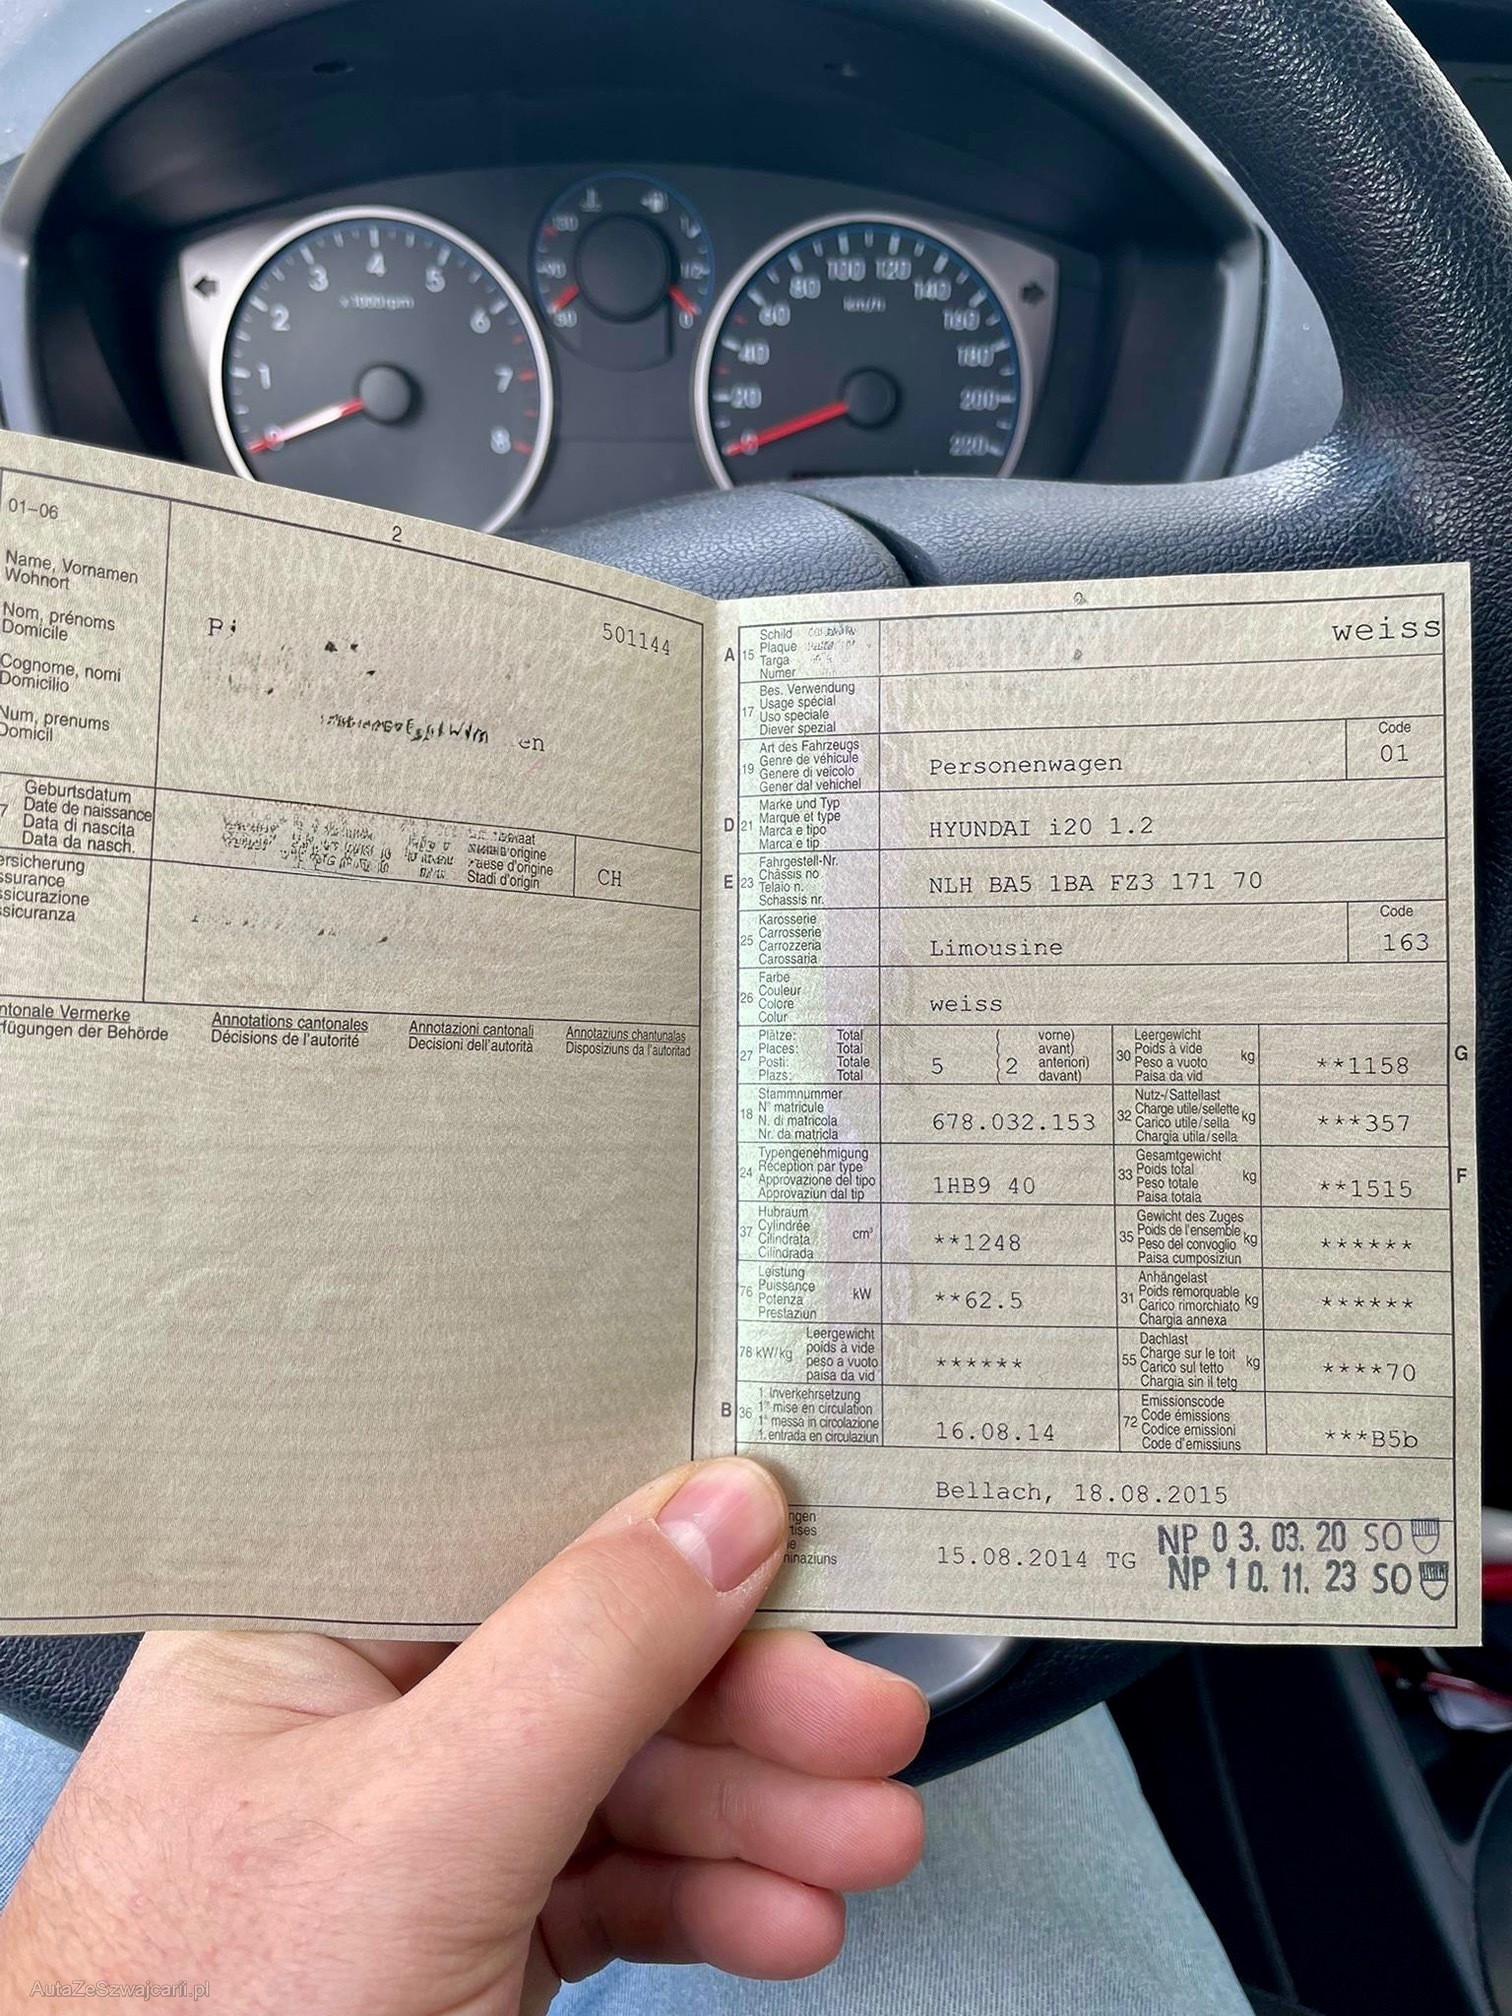 1
2
3
4
5
6
7
8
x 1000 rpm
0
20
40
60
80
100
120
140
160
180
200
220
km/h
01-06
2
Name, Vornamen
Wohnort
Nom, prénoms
Domicile
Cognome, nomi
Domicilio
Num, prenums
Domicil
501144
en
Geburtsdatum
Date de naissance
Data di nascita
Data da nasch.
d'origine
Paese d'origine
Stadi d'origin
CH
Annotations cantonales
Décisions de l'autorité
Annotazioni cantonali
Decisioni dell'autorità
Annotaziuns chantunalas
Disposiziuns da l'autoritad
A 15 Schild
Plaque
Targa
Numer
weiss
17 Bes. Verwendung
Usage spécial
Uso speciale
Diever spezial
19 Art des Fahrzeugs
Genre de véhicule
Genere di veicolo
Gener dal vehichel
Personenwagen
Code
01
D 21 Marke und Typ
Marque et type
Marca e tipo
Marca e tip
HYUNDAI i20 1.2
E 23 Fahrgestell-Nr.
Châssis no
Telaio n.
Schassis nr.
NLH BA5 1BA FZ3 171 70
25 Karosserie
Carrosserie
Carrozzeria
Carossaria
Limousine
Code
163
26 Farbe
Couleur
Colore
Colur
weiss
27 Plätze: Total
Places: Total
Posti: Totale
Plazs: Total
5 (2 vorne)
avant)
anteriori)
davant)
30 Leergewicht
Poids à vide
Peso a vuoto
Paisa da vid
kg
**1158
G
18 Stammnummer
N° matricule
N. di matricola
Nr. da matricla
678.032.153
32 Nutz-/Sattellast
Charge utile/sellette
Carico utile/sella
Chargia utila/sella
kg
***357
24 Typengenehmigung
Réception par type
Approvazione del tipo
Approvaziun dal tip
1HB9 40
33 Gesamtgewicht
Poids total
Peso totale
Paisa totala
kg
**1515
F
37 Hubraum
Cylindrée
Cilindrata
Cilindrada
cm³
**1248
35 Gewicht des Zuges
Poids de l'ensemble
Peso del convoglio
Paisa cumposiziun
kg
******
76 Leistung
Puissance
Potenza
Prestaziun
kW
**62.5
31 Anhängelast
Poids remorquable
Carico rimorchiato
Chargia annexa
kg
******
78 kW/kg Leergewicht
poids à vide
peso a vuoto
paisa da vid
******
55 Dachlast
Charge sur le toit
Carico sul tetto
Chargia sin il tetg
kg
****70
B 36 1. Inverkehrsetzung
1re mise en circulation
1a messa in circolazione
1. entrada en circulaziun
16.08.14
72 Emissionscode
Code émissions
Codice emissioni
Code d'emissiuns
***B5b
Bellach, 18.08.2015
15.08.2014 TG
NP 0 3. 03. 20 SO
NP 1 0. 11. 23 SO
AutaZeSzwajcarii.pl